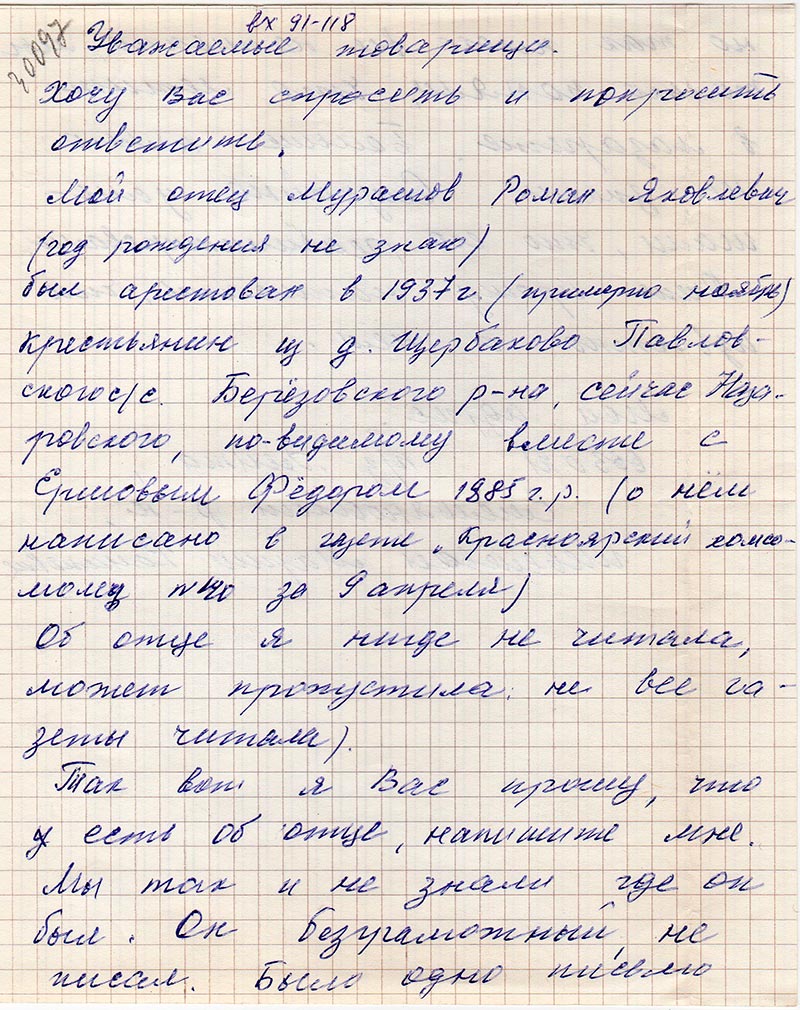 вх 91-118
30097
Уважаемые товарищи.
Хочу Вас спросить и попросить
ответить.
Мой отец Мурашов Роман Яковлевич
(год рождения не знаю)
был арестован в 1937 г. (примерно ноябрь)
крестьянин из д. Щербаково Павлов-
ского с/с. Берёзовского р-на, сейчас Наза-
ровского, по-видимому вместе с
Ершовым Фёдором 1885 г.р. (о нём
написано в газете „Красноярский комсо-
молец N 40 за 9 апреля)
Об отце я нигде не читала,
может пропустила: не все га-
зеты читала).
Так вот я Вас прошу, что
у есть об отце, напишите мне.
Мы так и не знали где он
был. Он безграмотный, не
писал. Было одно письмо